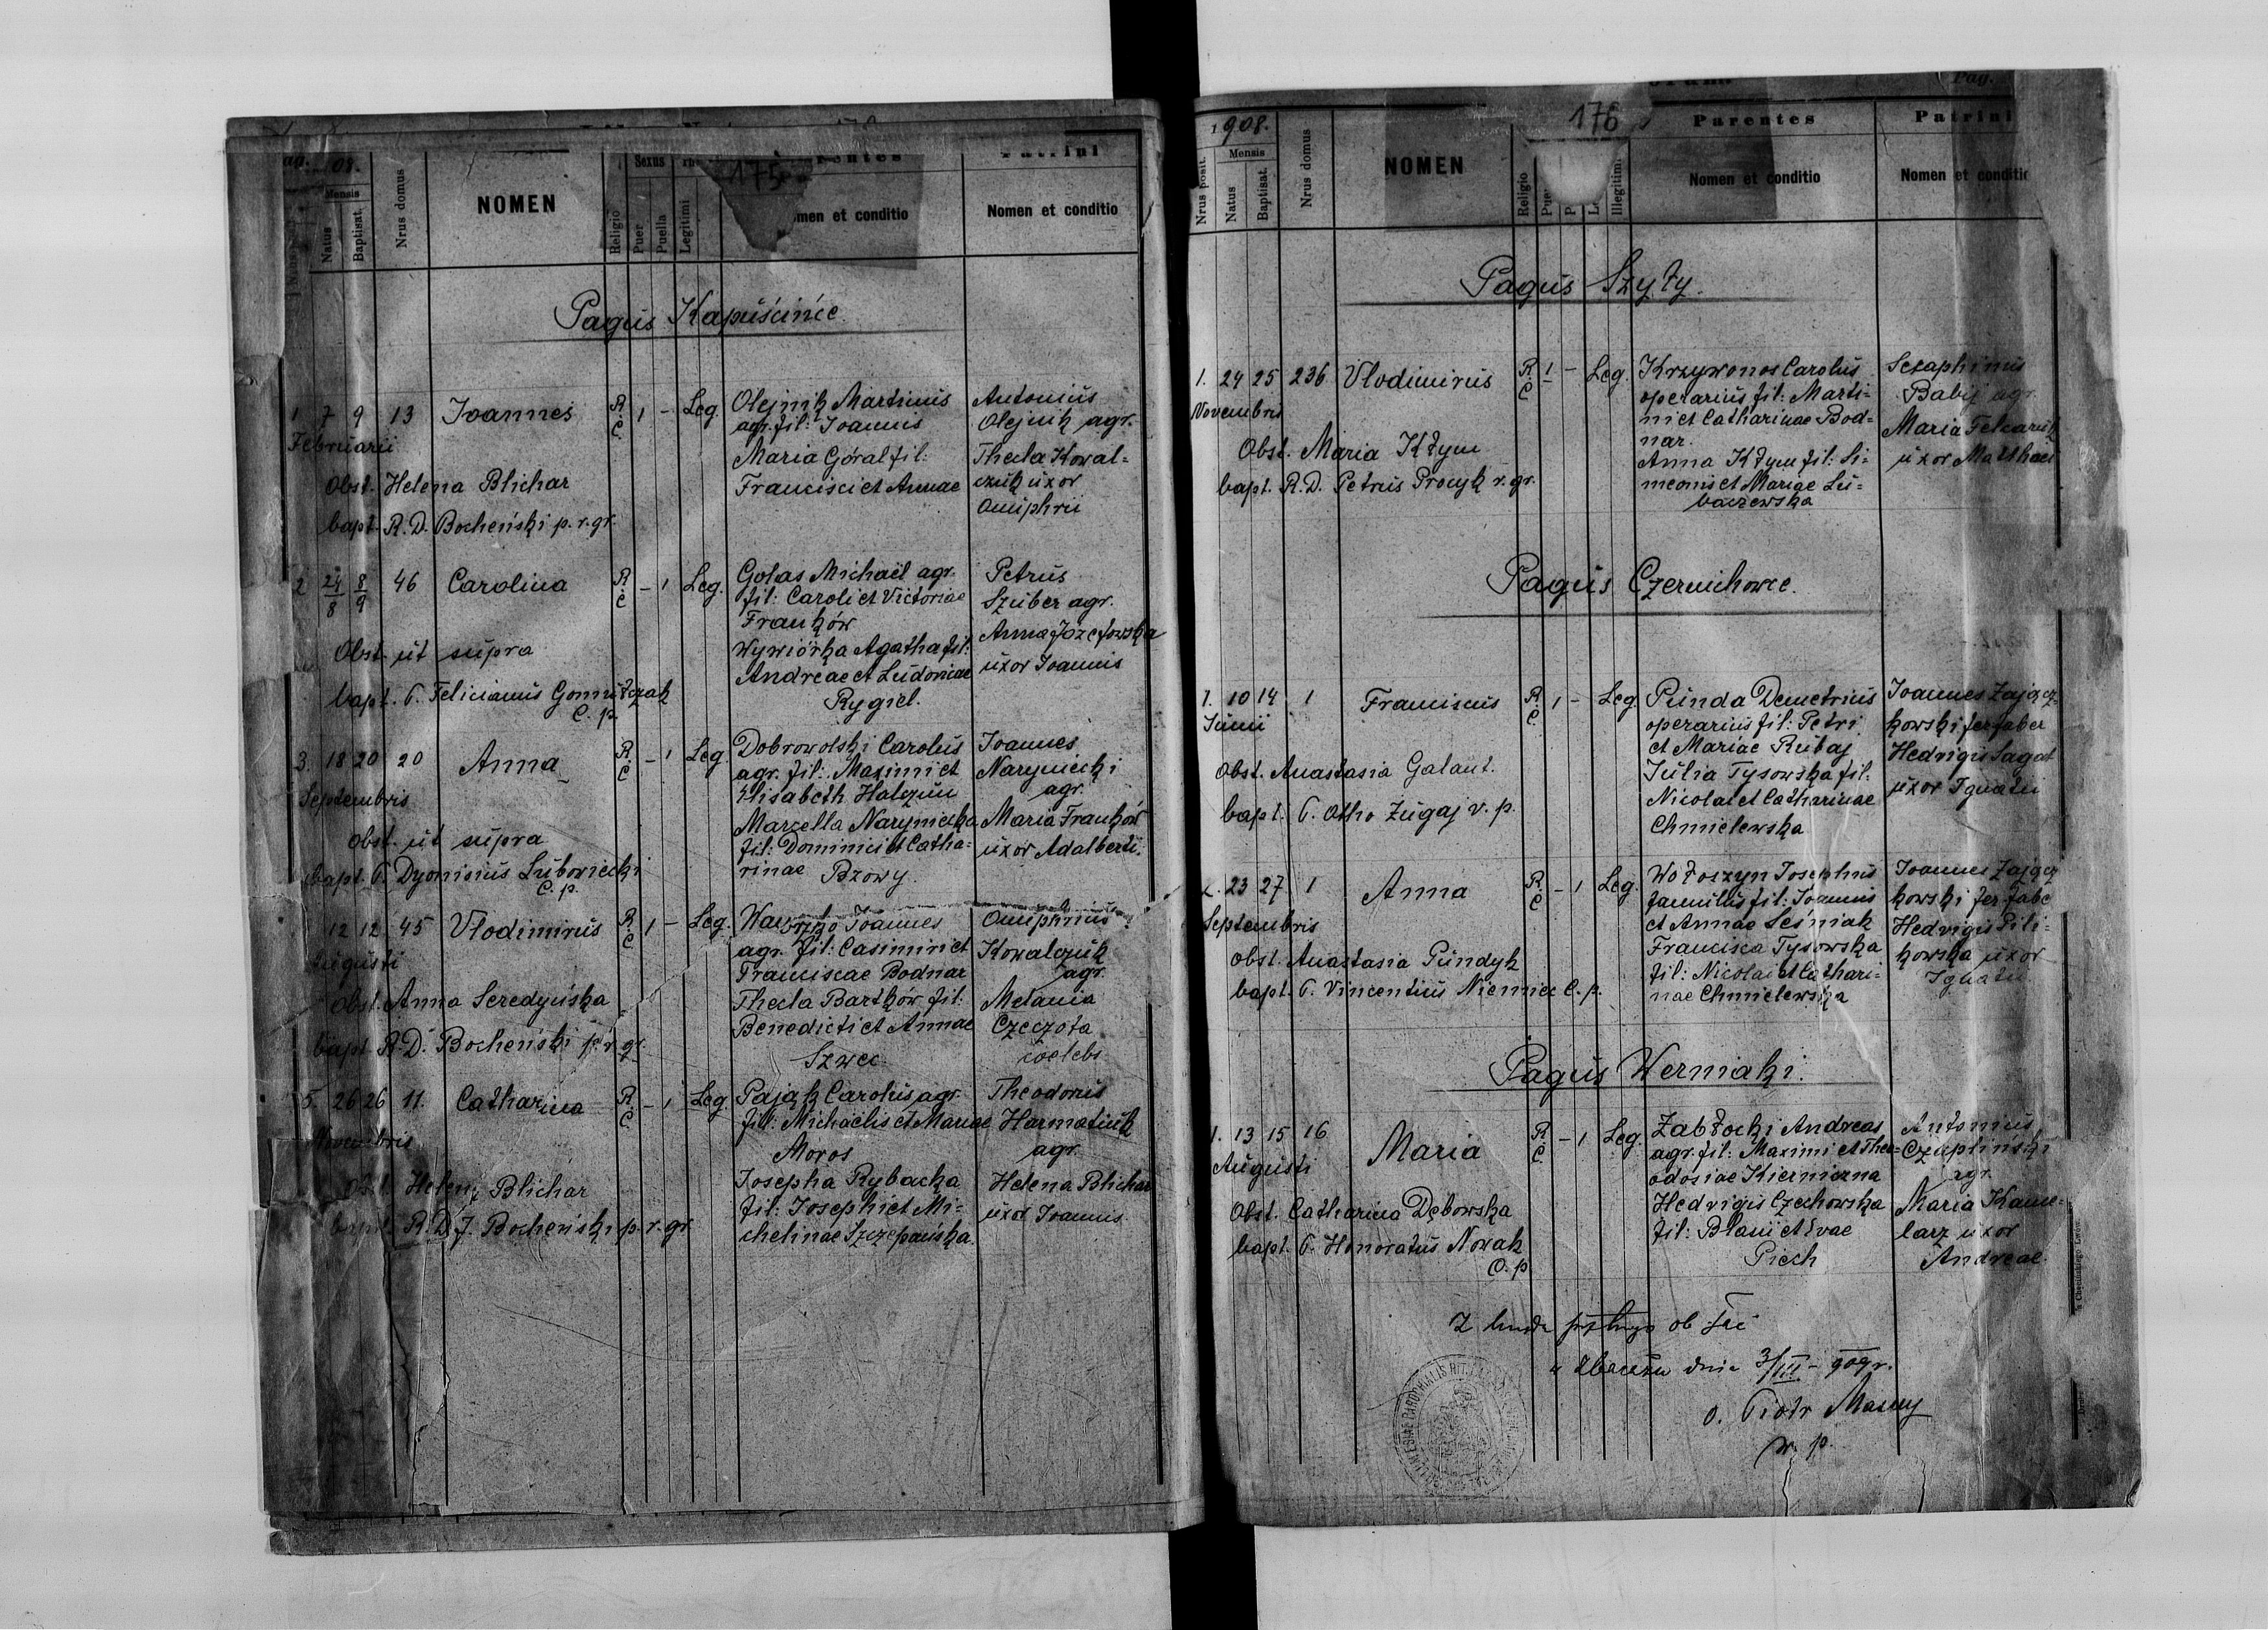 08.
175
Mensis
Natus
Baptisat.
Nrus domus
NOMEN
Religio
Sexus
Puer
Puella
Legitimi
Nomen et conditio
Patrini
Nomen et conditio
Pagus Kapuścińce
1 7 9 13 Joannes R. C. 1 - Leg. Olejnik Martinus Antonius
Februarii agr. fil: Joannis Olejnik agr.
Maria Góral fil: Thecla Kowal=
Obst. Helena Blichar Francisci et Annae czuk uxor
Onuphrii
bapt. R. D. Bocheński p. r. gr.
2 24/8 8/9 46 Carolina R. C. - 1 Leg. Golas Michaël agr. Petrus
fil: Caroli et Victoriae Szuber agr.
Franków Anna Józefowska
Obst. ut supra Wywiórka Agatha fil: uxor Joannis
Andreae et Ludovicae
bapt. P. Felicianus Rygiel.
C. p.
3. 18 20 20 Anna R. C. - 1 Leg. Dobrowolski Carolus Joannes
agr. fil: Maximi et Naryniecki
Septembris Elisabeth agr.
Marcella Naryniecka Maria Franków
obst. ut supra fil: Dominici et Catha= uxor Adalberti.
bapt. P. Dyonisius Lubowiecki rinae Bzowy
C. p.
12 12 45 Vlodimirus R. C. 1 - Leg. Joannes Onuphrius
Augusti agr. fil: Casimiri et Kowalczuk
Franciscae Bodnar agr.
Obst. Anna Seredyńska Thecla Bartków fil: Melania
Benedicti et Annae Czeczota
bapt R. D. Bocheński p. r. gr. Szwec coelebs
5. 26 26 11. Catharina R. C. - 1 Leg. Pająk Carolus agr. Theodorus
Novembris fil: Michaëlis et Mariae Harmatiuk
Moros agr.
Obst. Helena Blichar Josepha Rybacka Helena Blichar
fil: Josephi et Mi= uxor Joannis.
bapt. R. D. J. Bocheński p. r. gr. chelinae Szczepańska.
Pag.
1908.
176
Nrus posit.
Mensis
Natus
Baptisat.
Nrus domus
NOMEN
Religio
Illegitimi
Parentes
Nomen et conditio
Patrini
Nomen et conditio
Pagus Szyły.
1. 24 25 236 Vlodimirus R. C. 1 - Leg. Krzywonos Carolus Seraphinus
Novembris operarius fil: Marti= Babij agr.
ni et Catharinae Bod= Maria
nar. uxor Matthaei
Obst. Maria Kłym Anna Kłym fil: Si=
meonis et Mariae Lu=
bapt. R. D. Petrus Procyk r. gr. baczewska
Pagus Czernichowce.
1. 10 14 1 Franciscus R. C. 1 - Leg. Punda Demetrius Joannes Zającz=
Junii operarius fil: Petri kowski fer faber
et Mariae Rubaj Hedvigis Sagat
Obst. Anastasia Galant. Julia Tysowska fil: uxor Ignatii
Nicolai et Catharinae
bapt. P. Otho Zugaj v. p. Chmielewska
2. 23 27 1 Anna R. C. - 1 Leg. Wołoszyn Josephus Joannes Zającz
Septembris famulus fil: Joannis kowski fer fabe
et Annae Leśniak Hedvigis Pili=
obst. Anastasia Pundyk Francisca Tysowska kowska uxor
fil: Nicolai et Cathari= Ignatii
bapt. P. Vincentius Niemiec C. p. nae Chmielewska
Pagus Werniaki.
1. 13 15 16 Maria R. C. - 1 Leg. Zabłocki Andreas Antonius
Augusti agr. fil: Maximi et Theo= Czapliński
odosiae Kierniczna agr.
Obst. Catharina Dębowska Hedvigis Czechowska Maria Kame=
fil: Blasii et Evae larz uxor
bapt. P. Honoratus Nowak Piech Andreae.
C. p.
Z
dnia 3/III - 909 r.
o. Piotr